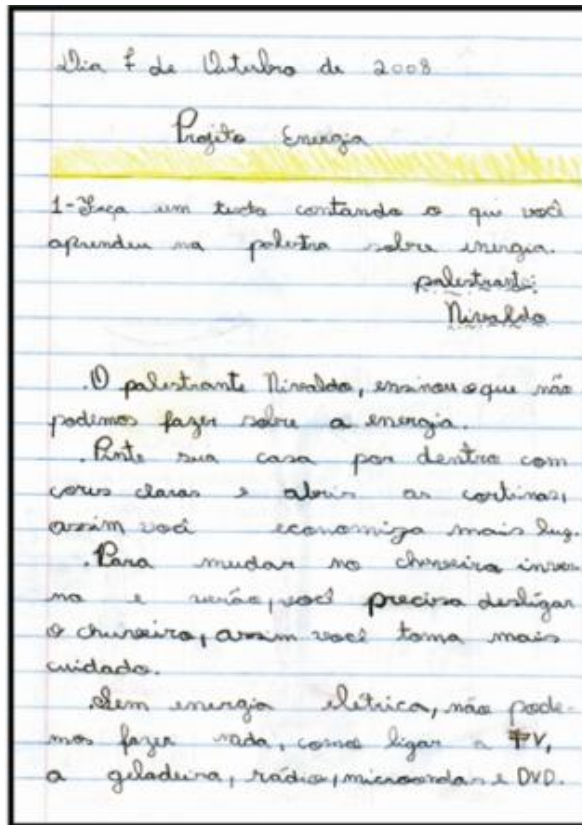 Dia 7 de Outubro de 2008
Projeto Energia
1-Faça um texto contando o que você
aprendeu na palestra sobre energia.
palestrante:
Nivaldo
.O palestrante Nivaldo, ensinou o que não
podemos fazer sobre a energia.
.Pinte sua casa por dentro com
cores claras e abris as cortinas,
assim você economiza mais luz.
.Para mudar no chuveiro inver
no e verão, você precisa desligar
o chuveiro, assim você toma mais
cuidado.
.Sem energia elétrica, não pode-
mos fazer nada, como ligar a TV,
a geladeira, rádio, microondas e DVD.